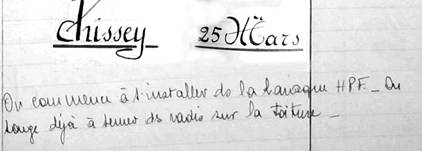 Chissey 25 Mars
On commence à s'installer ds la baraque HPF_ On
songe déjà à semer ds radis sur la toiture _